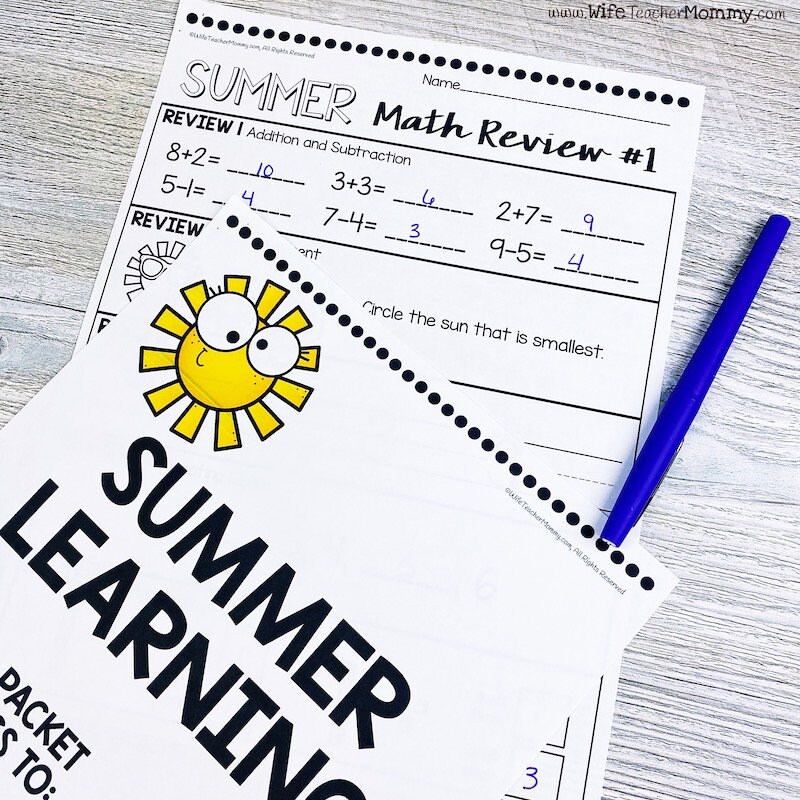 www.WifeTeacherMommy.com
©WifeTeacherMommy.com, All Rights Reserved
Name
SUMMER Math Review #1
REVIEW 1 Addition and Subtraction
8+2= 10 3+3= 6 2+7= 9
5-1= 4 7-4= 3 9-5= 4
REVIEW
Circle the sun that is smallest.
©WifeTeacherMommy.com, All Rights Reserved
SUMMER
LEARNING
PACKET
TO:
3